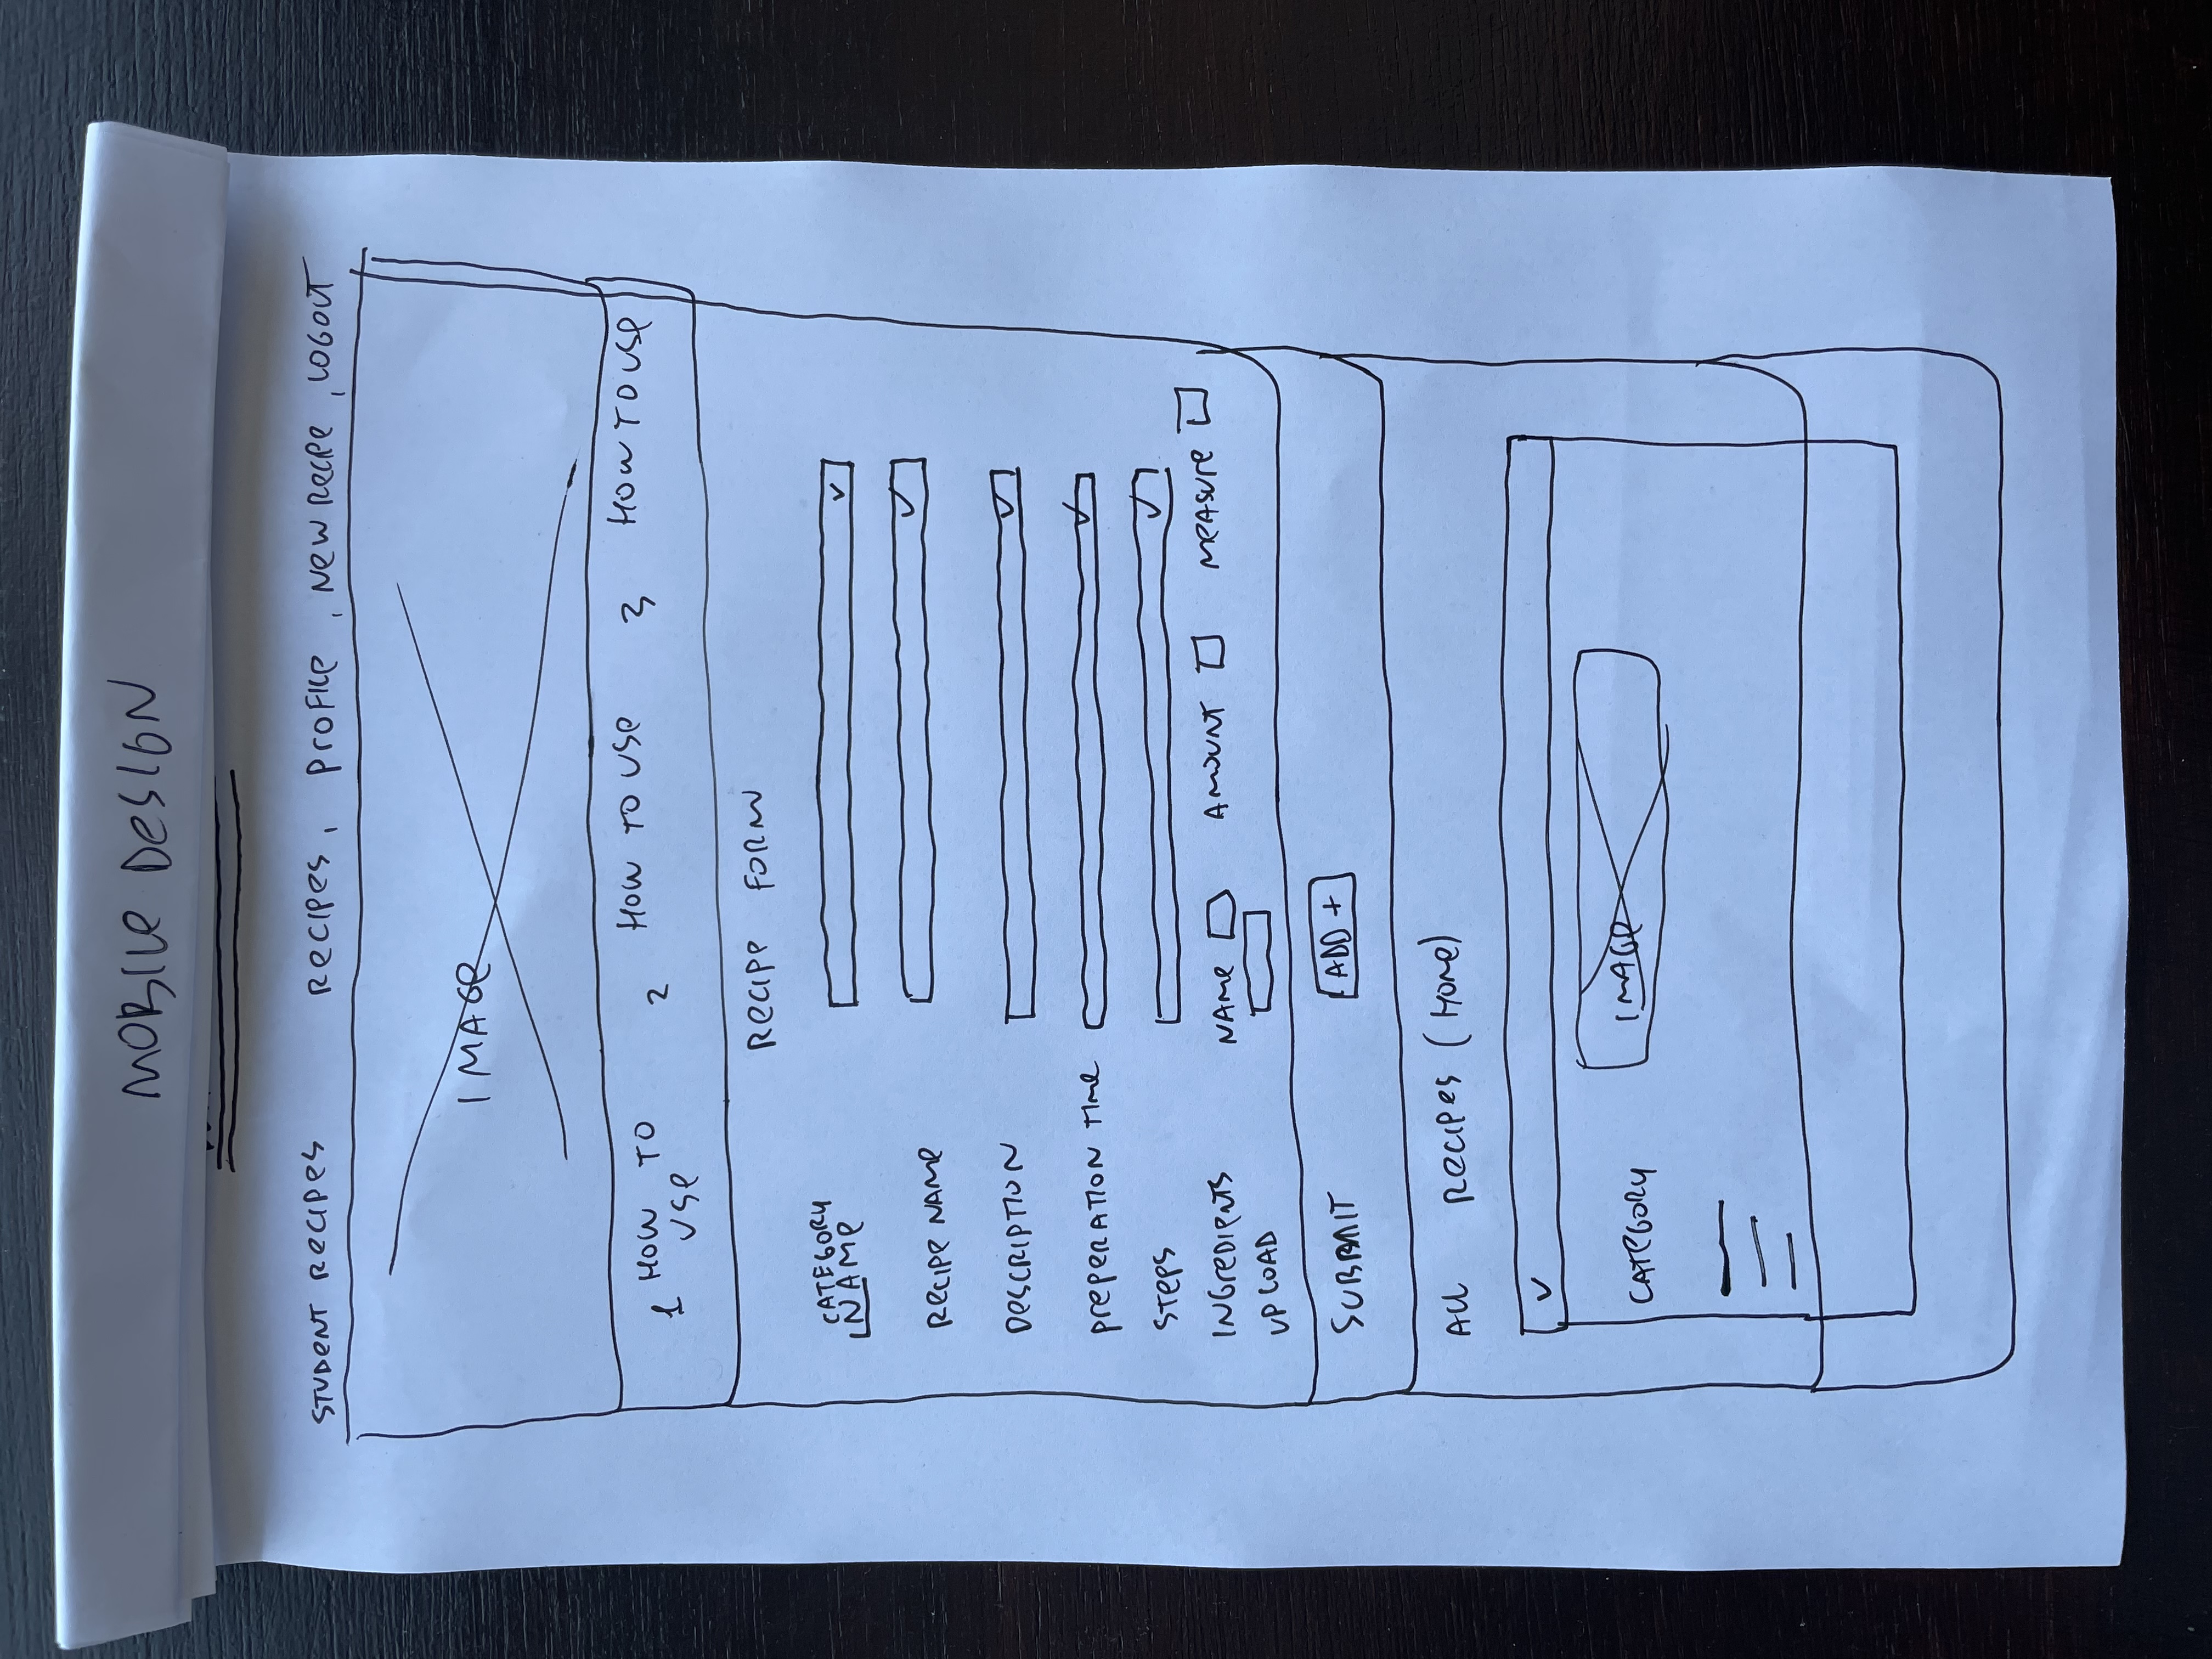 MOBILE DESIGN
STUDENT RECIPES RECIPES, PROFILE, NEW RECIPE, LOGOUT
IMAGE
1 HOW TO USE 2 HOW TO USE 3 HOW TO USE
RECIPE FORM
CATEGORY
NAME
RECIPE NAME
DESCRIPTION
PREPERATION TIME
STEPS
INGREDIENTS NAME AMOUNT MEASURE
UPLOAD
SUBMIT ADD +
ALL RECIPES (HOME)
CATEGORY IMAGE